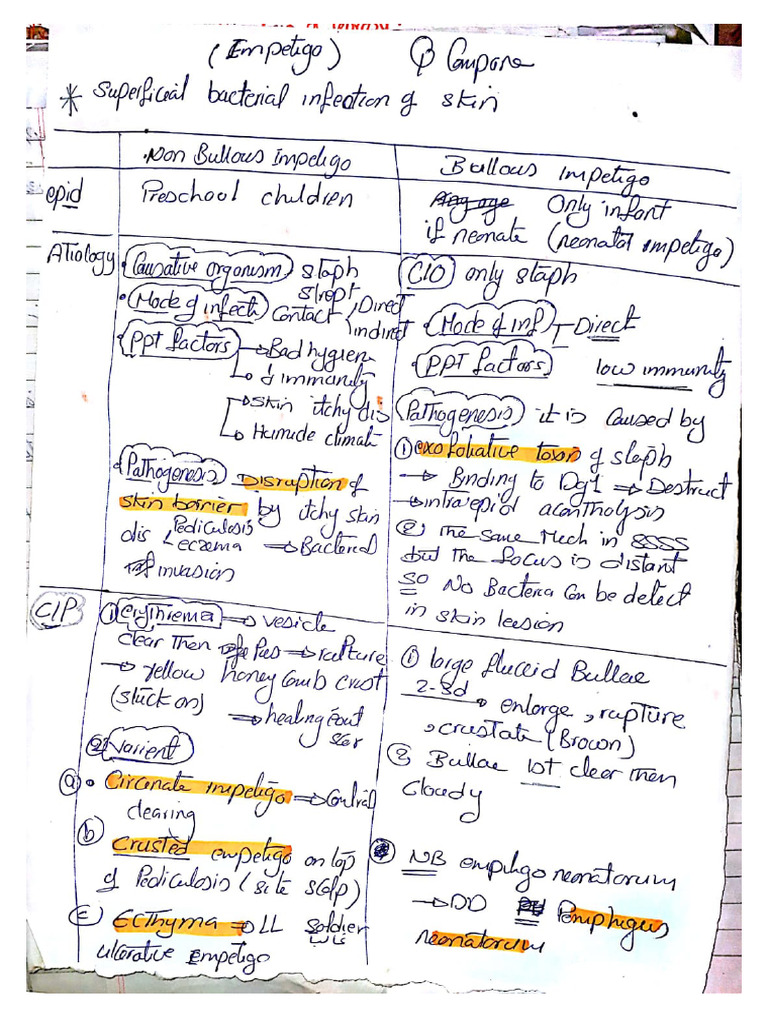 (Impetigo) Q Compare
* Superficeal bacterial infection of skin
Non Bullous Impetigo
Bullous impetigo
epid
Preschool children
Only infant
if neonate (neonatal impetigo)
Atiology
Causative organism staph
strept
Mode of infect Contact Direct
indirect
PPt factors → Bad hygien
→ ↓ immunity
→ skin itchy dis
→ Humide climate
Pathogenesis Disruption of
skin barrier by itchy skin
dis < Pediculosis
eczema ⇒ Bacterial
invasion
C/O only staph
Mode of inf Direct
PPT factors low immunity
Pathogenesis it is caused by
① exofoliative toxin of staph
→ Binding to Dg1 ⇒ Destruct
→ intraepid acantholysis
② The same Mech in SSSS
but the focus is distant
so No Bacteria Can be detect
in skin leesion
C/P
① erythrema → vesicle
clear Then Pus ⇒ rupture
→ yellow honey Comb crust
(stuck on)
⇒ healing êout
scar
② varient
ⓐ Circinate impetigo ⇒ Central
clearing
ⓑ Crusted empetigo on top
of Pediculosis (site scalp)
ⓒ Ecthyma ⇒ LL Soldier
غالب
ulcerative Empetigo
① large fluccid Bullae
2-3d → enlarge, rupture
, crustate (Brown)
② Bullae 1st clear then
Cloudy
NB empitigo neonatorum
→ DD Pemphigus
neonatorum